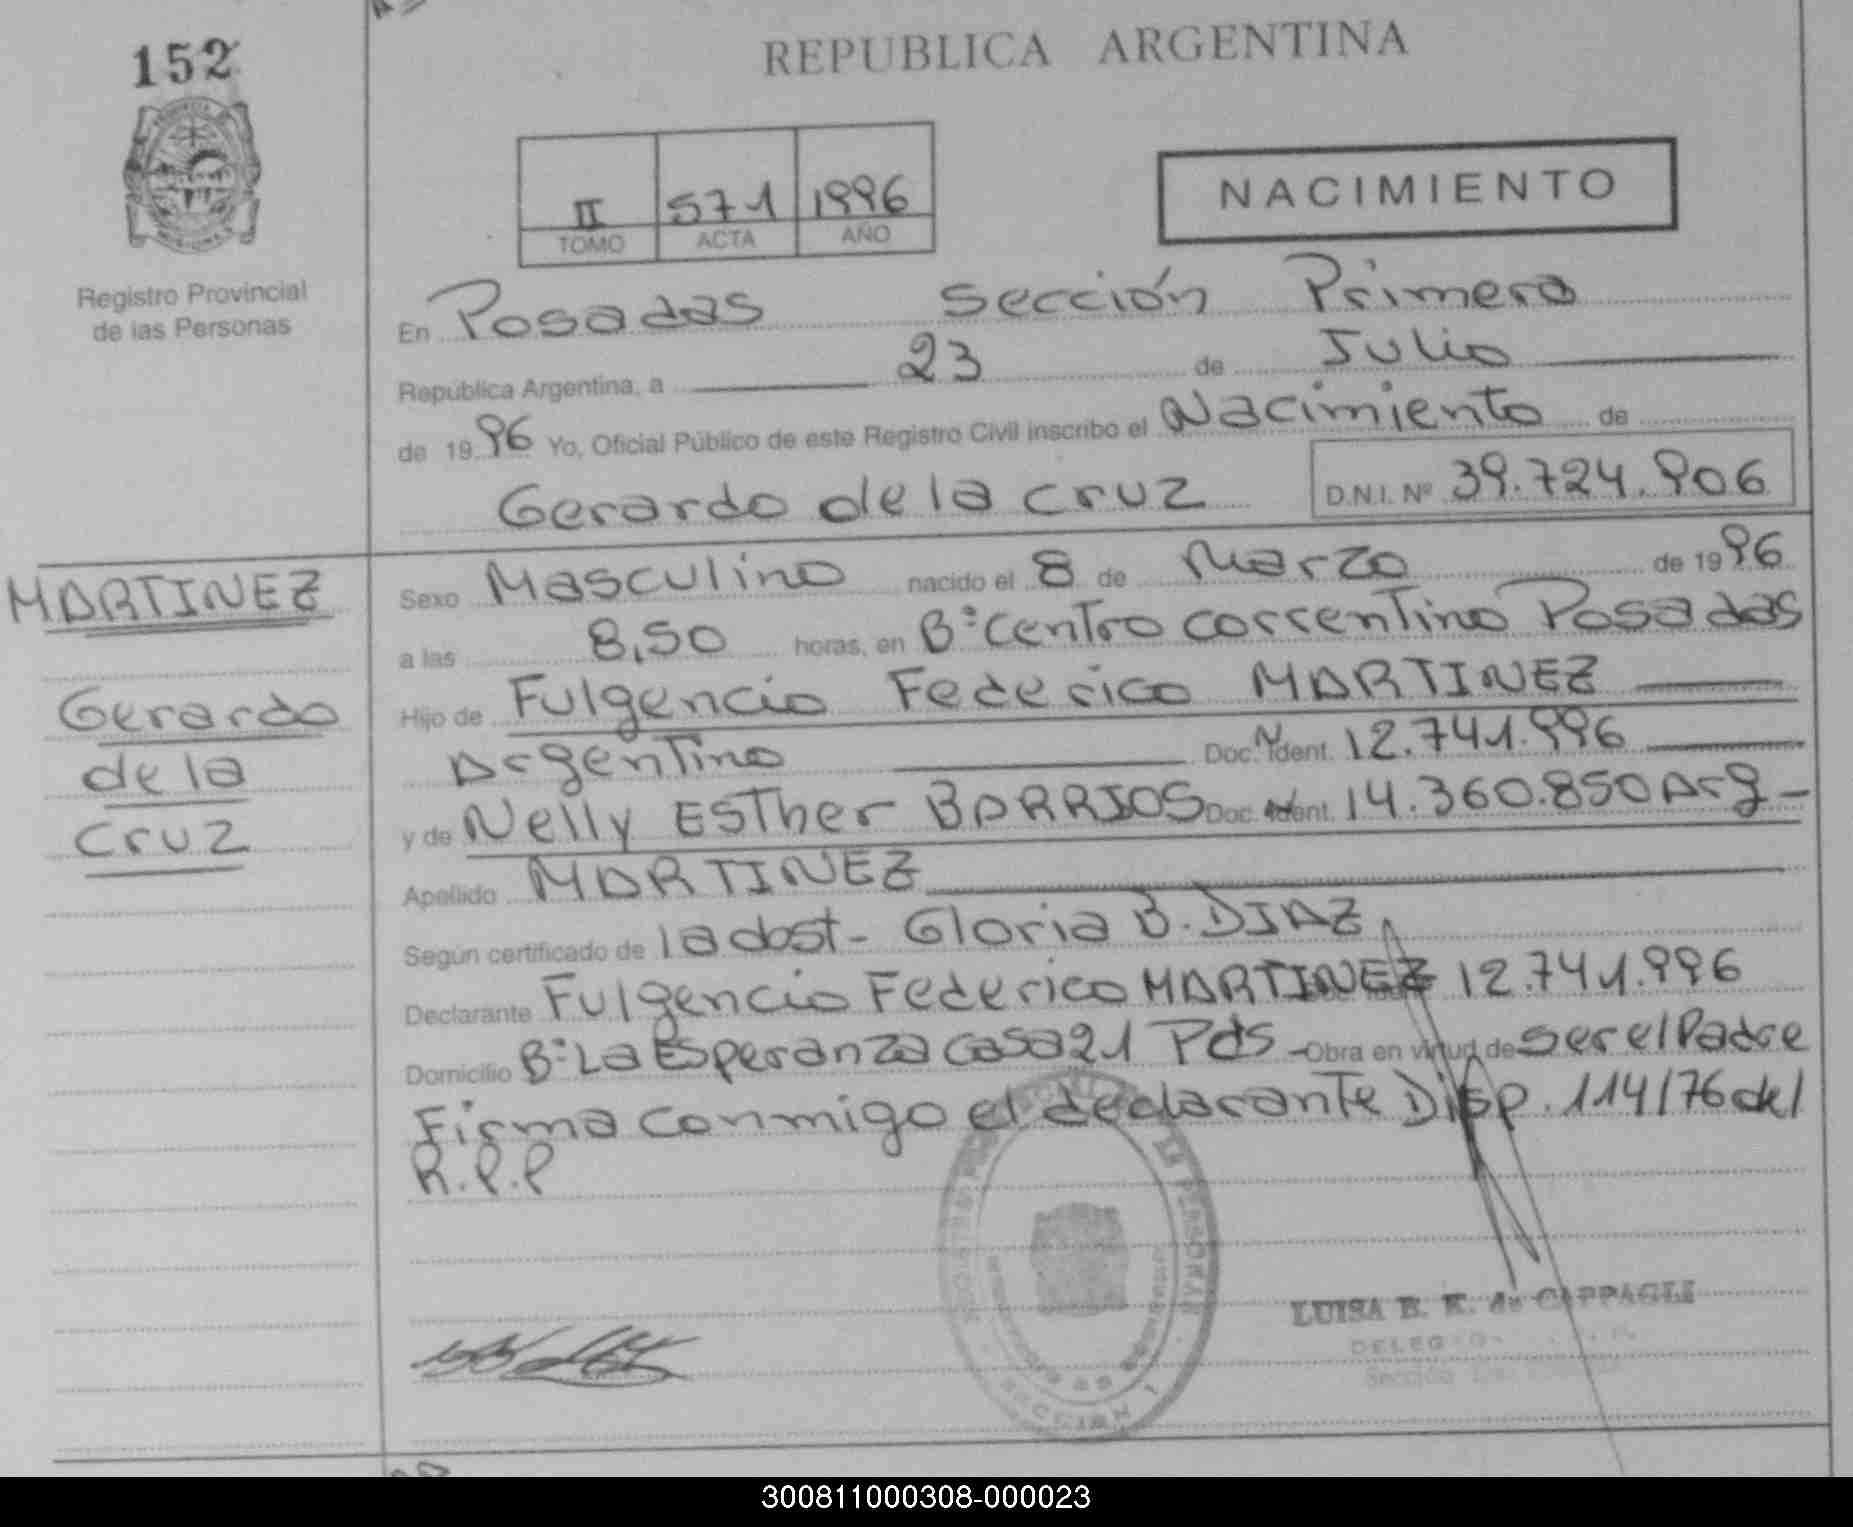 152
REPUBLICA ARGENTINA
II 571 1996
TOMO ACTA AÑO
NACIMIENTO
Registro Provincial
de las Personas
En Posadas Sección Primera
República Argentina, a 23 de Julio
de 1996 Yo, Oficial Público de este Registro Civil inscribo el Nacimiento de
Gerardo de la Cruz D.N.I. Nº 39.724.906
MARTINEZ
Gerardo
de la
Cruz
Sexo Masculino nacido el 8 de Marzo de 1996
a las 8,50 horas, en Bº Centro Correntino Posadas
Hijo de Fulgencio Federico MARTINEZ
Argentino Doc. Ident. 12.741.996
y de Nelly Esther BARRIOS Doc. Ident. 14.360.850 Arg-
Apellido MARTINEZ
Según certificado de la obst- Gloria B. DIAZ
Declarante Fulgencio Federico MARTINEZ 12.741.996
Domicilio Bº La Esperanza casa 21 Pds - Obra en virtud de ser el Padre
Firma conmigo el declarante Disp. 114/76 del
R.P.P
LUISA B. K. de CAPPAGLI
300811000308-000023